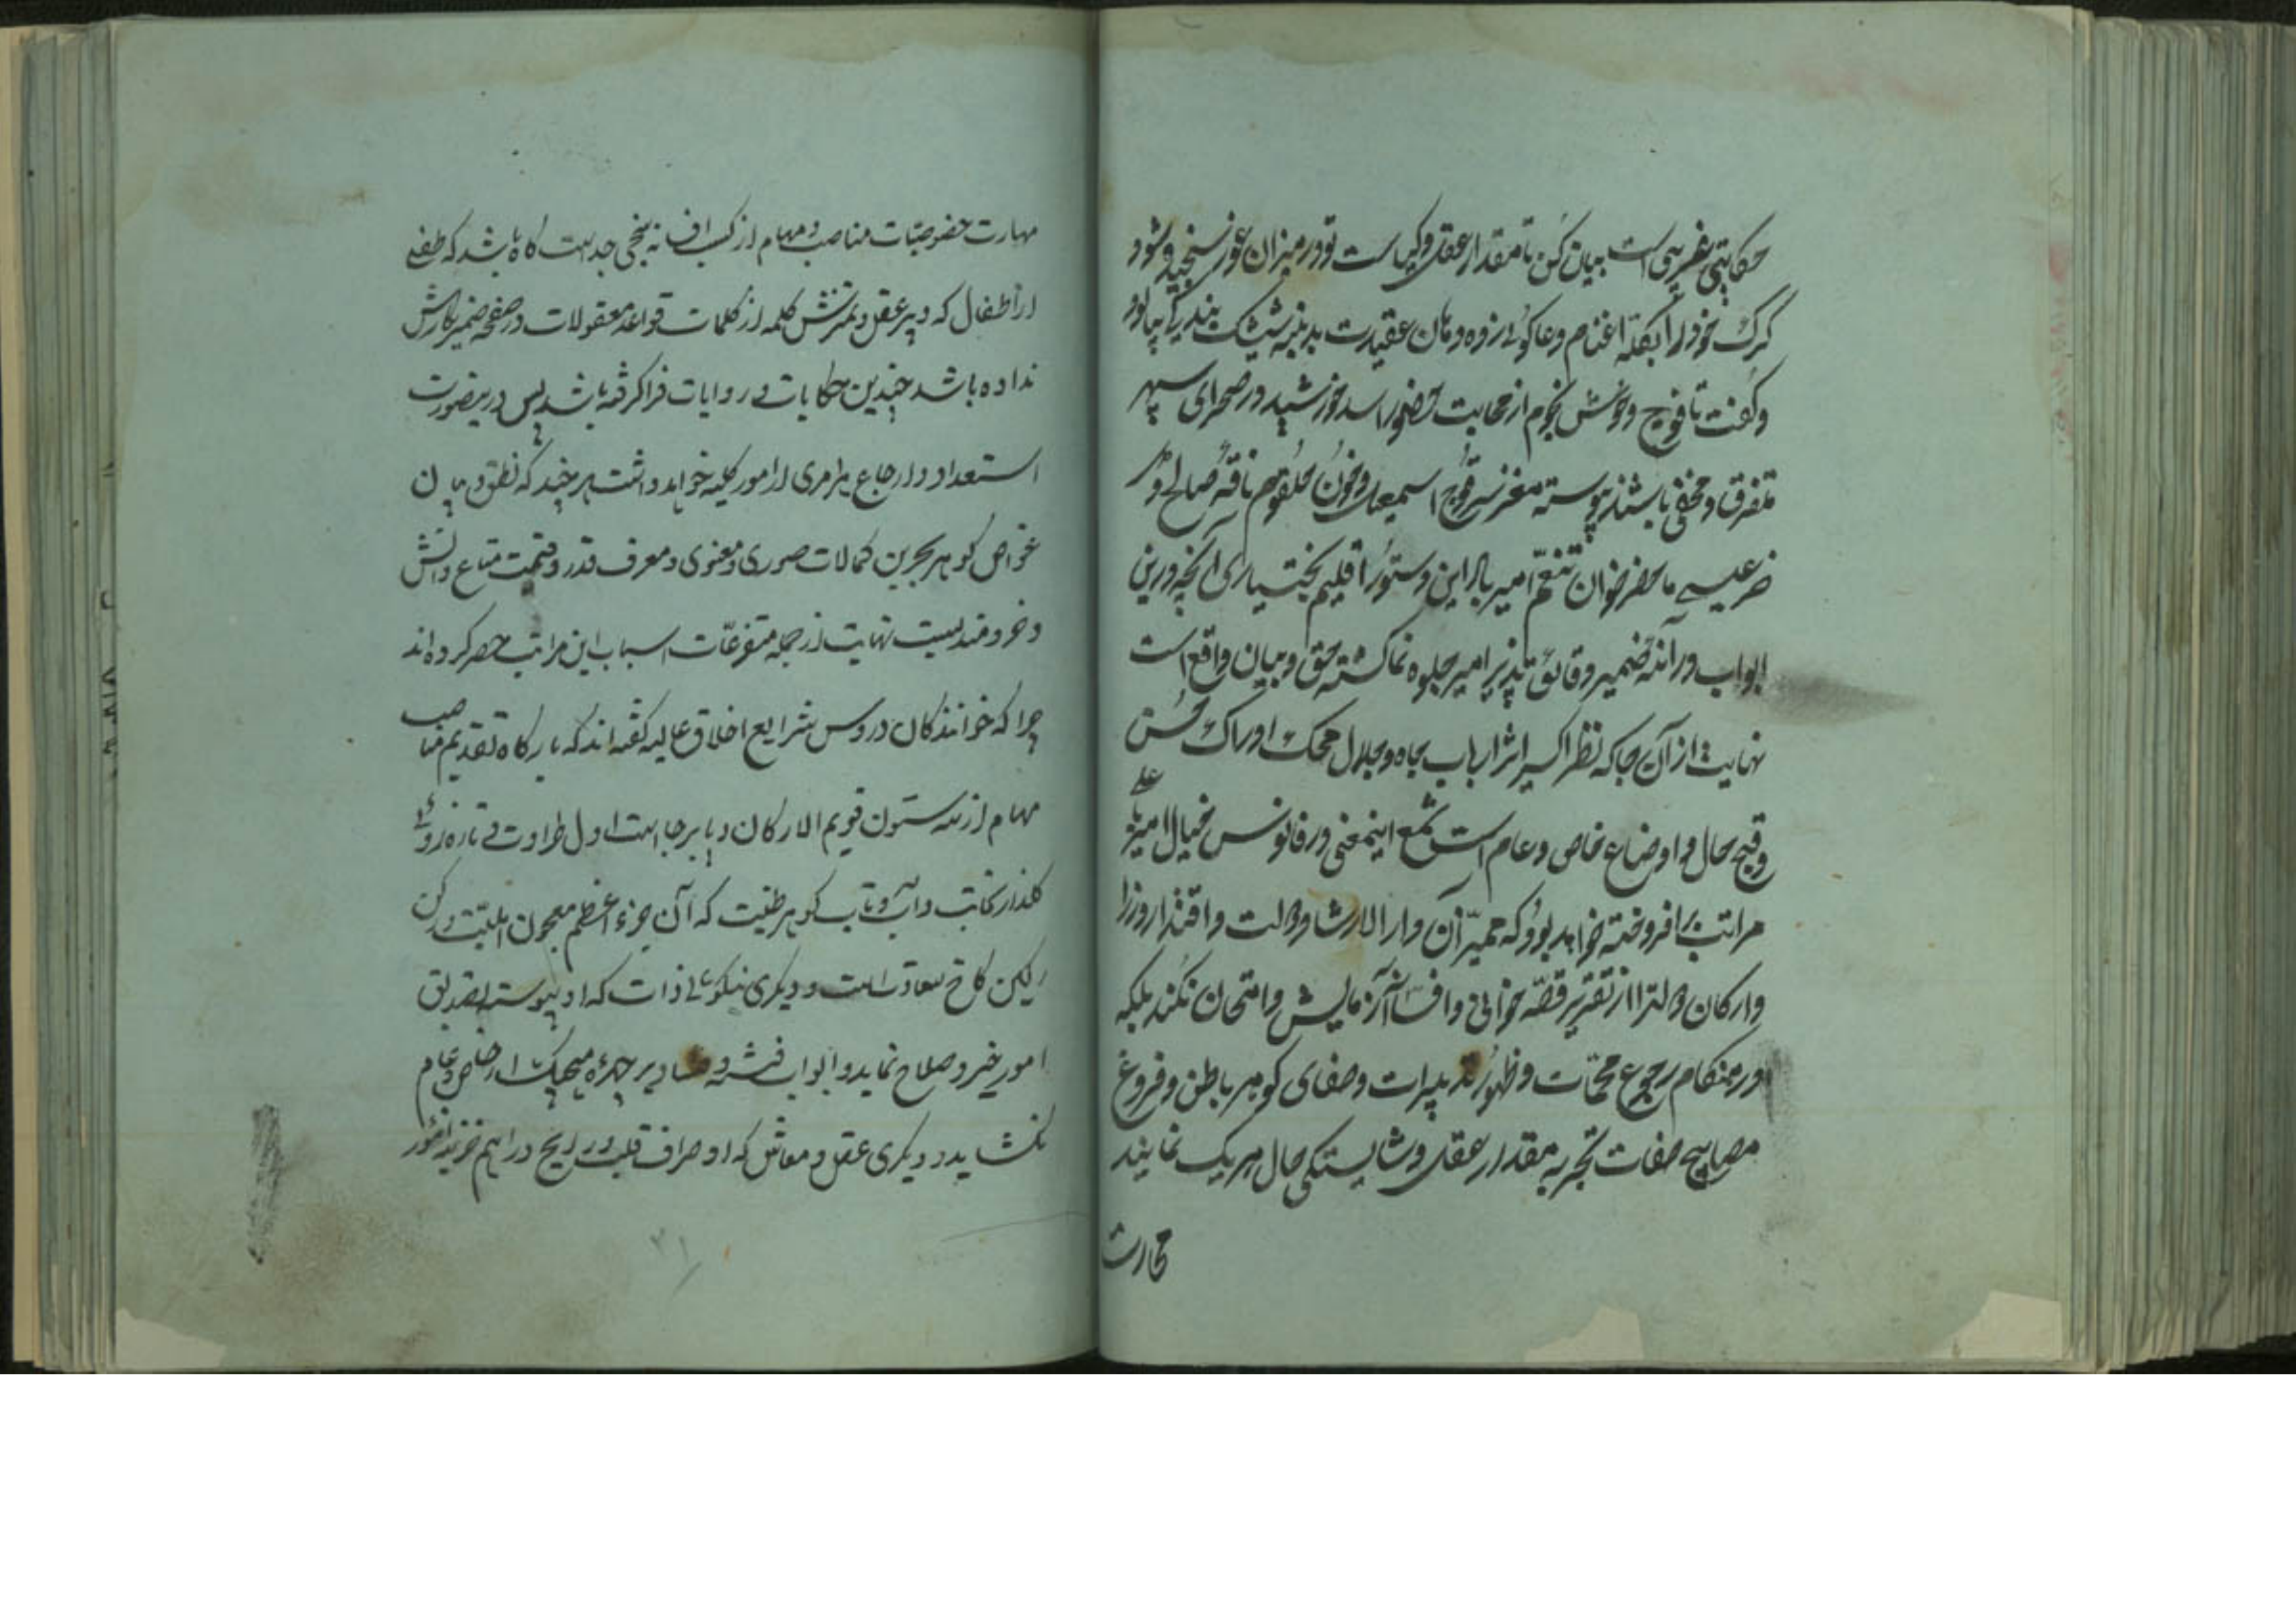 حکایتی غریبی است بیان کن تا مقدار عقل و کیاست تو در میزان غور سنجیده شود
کرک خود را بگله اغنام دعا کوئی زده و دهان عقیدت بدنبه شیشک بندیکی بیالود
و کفت تا قوچ وحوش نجوم از مهابت حضور اسد خورشید در صحرای سپهر
متفرق و مخفی باشند پیوسته مغز سر قوچ اسمیعیل و خون حلقوم ناقه صالح و
خر عیسی ما حضر خوان تنعم امیر باد این دستور اقلیم بختیاری آنچه درین
ابواب در آئنه ضمیر دقائق پذیر امیر جلوه نما کشته حق و بیان واقع است
نهایت از آن جا که نظر اکسیر اثر ارباب جاه و جلال محک ادراک حسن
و قبح حال و اوضاع خاص و عام است شمع اینمعنی در فانوس خیال امیر با علی
مراتب بر افروخته خواهد بود که ممیز آن دار الارشاد دولت و اقتدار وزرا
و ارکان دولترا از تقریر قصه خوانی و افسانه آزمایش و امتحان نکنند بلکه
در هنکام رجوع مهمات و ظهور تدبیرات و صفای کوهر باطن و فروغ
مصابیح صفات تجربه مقدار عقل و شایستکی حال هر یک نمایند
مهارت
مهارت خصوصیات مناصب و مهام از کسب افسانه سنجی جداست کاه باشد که طفلی
از اطفال که دبیر عقل و تمیزش کلمه از کلمات قواعد معقولات در صفحه ضمیر نکارش
نداده باشد چندین حکایات و روایات فرا کرفته باشد پس درینصورت
استعداد و ارجاع هر امری از امور کلیه خواهد داشت هر چند که نطق و بیان
غواص کوهر بحرین کمالات صوری و معنوی و معرف قدر و قیمت متاع دانش
و خردمندیست نهایت از جمله متفرعات اسباب این مراتب حصر کرده اند
چرا که خوانندکان دروس شرایع اخلاق عالیه کفته اند که بارکاه تقدیم مناصب
مهام از سه ستون قویم الارکان و پا بر جا است اول طراوت و تازه روئی
کلذار نجابت و آب و تاب کوهر طینت که آن جزء اعظم معجون اهلیت و رکن
رکین کاخ سعادتست و دیکری نیکوئی ذات که او پیوسته بتصدیق
امور خیر و صلاح نماید و ابواب فتنه و فساد بر چهره هیچیک از خاص و عام
نکشاید و دیکری عقل و معاش که او صراف قلب و رایج دراهم خزینه امور
۳۱